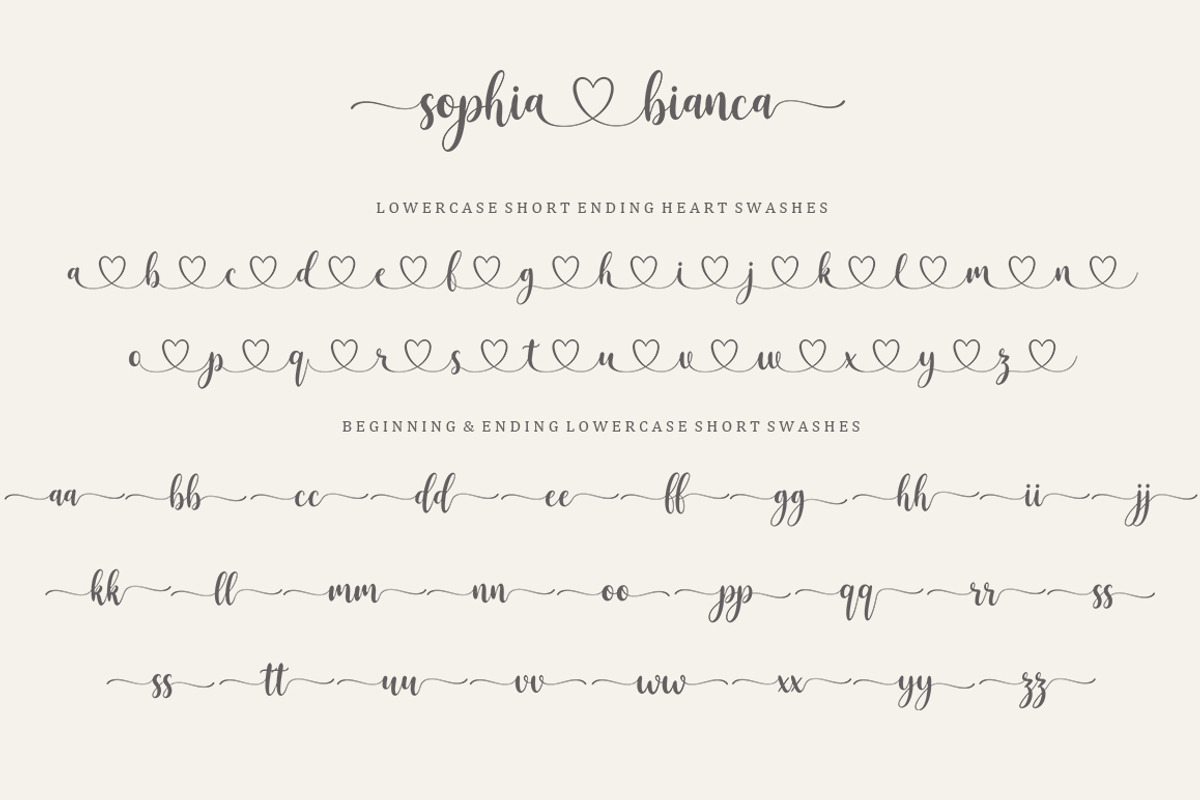 sophia bianca
LOWERCASE SHORT ENDING HEART SWASHES
a b c d e f g h i j k l m n
o p q r s t u v w x y z
BEGINNING & ENDING LOWERCASE SHORT SWASHES
aa bb cc dd ee ff gg hh ii jj
kk ll mm nn oo pp qq rr ss
ss tt uu vv ww xx yy zz